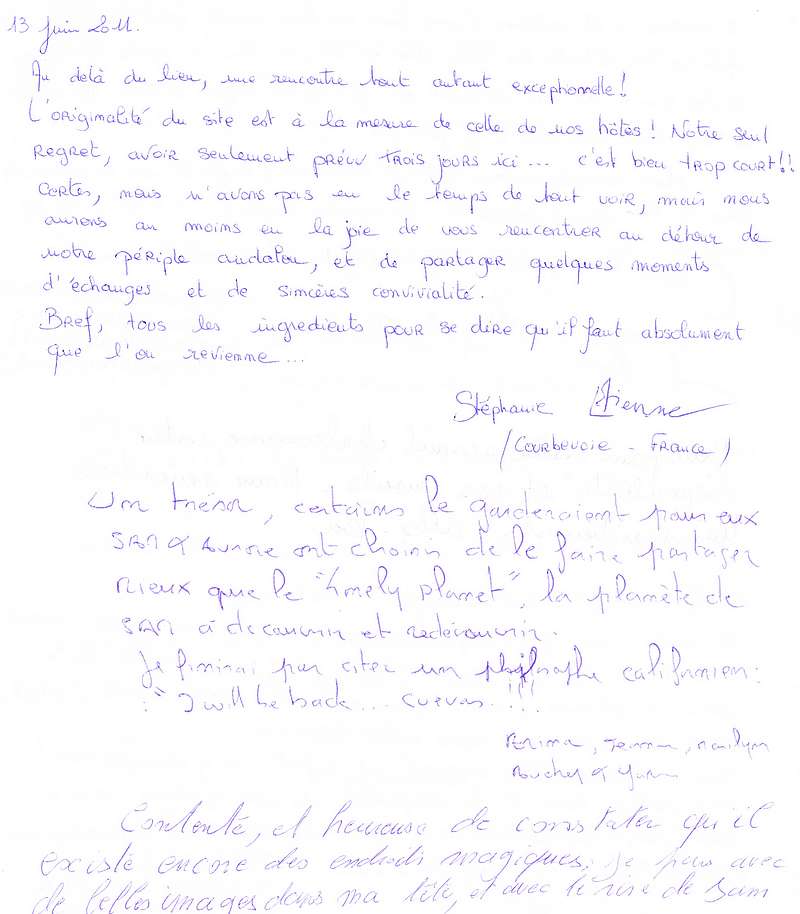 13 Juin 2011.
Au delà du lieu, une rencontre tout autant exceptionnelle!
L'originalité du site est à la mesure de celle de nos hôtes! Notre seul
regret, avoir seulement prévu trois jours ici... c'est bien trop court!!
Certes, nous n'avons pas eu le temps de tout voir, mais nous
aurons au moins eu la joie de vous rencontrer au détour de
notre périple andalou, et de partager quelques moments
d'échanges et de sincères convivialité.
Bref, tous les ingredients pour se dire qu'il faut absolument
que l'on revienne...
Stéphanie Etienne
(Courbevoie - France)
Un trésor, certains le garderaient pour eux
SAM & Aurore ont choisi de le faire partager
Mieux que le "lonely planet", la planète de
SAM à découvrir et redécouvrir.
Je finirai par citer un philosophe californien:
"I will be back... cuevas.!!!
Contente, et heureuse de constater qu'il
existe encore des endroits magiques, je pars avec
de belles images dans ma tête, et avec le rire de Sam